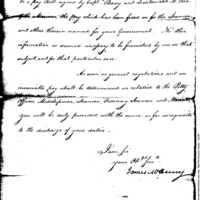 to a Pay Roll signed by Capt. Barry and Lieutenant
the Pay which has been fixed on for the Seamen
and others therein named for your Government. No other
information is deemed necessary to be furnished by me on that
subject and for that particular case.
As soon as general regulations and an
pay shall be determined on relative to the Petty
Officers, Midshipmen, Seamen, Ordinary Seamen and Marines
you will be only provided with the same as far as requisite
to the discharge of your duties.
I am Sir
your Obt. Serv.
James McHenry